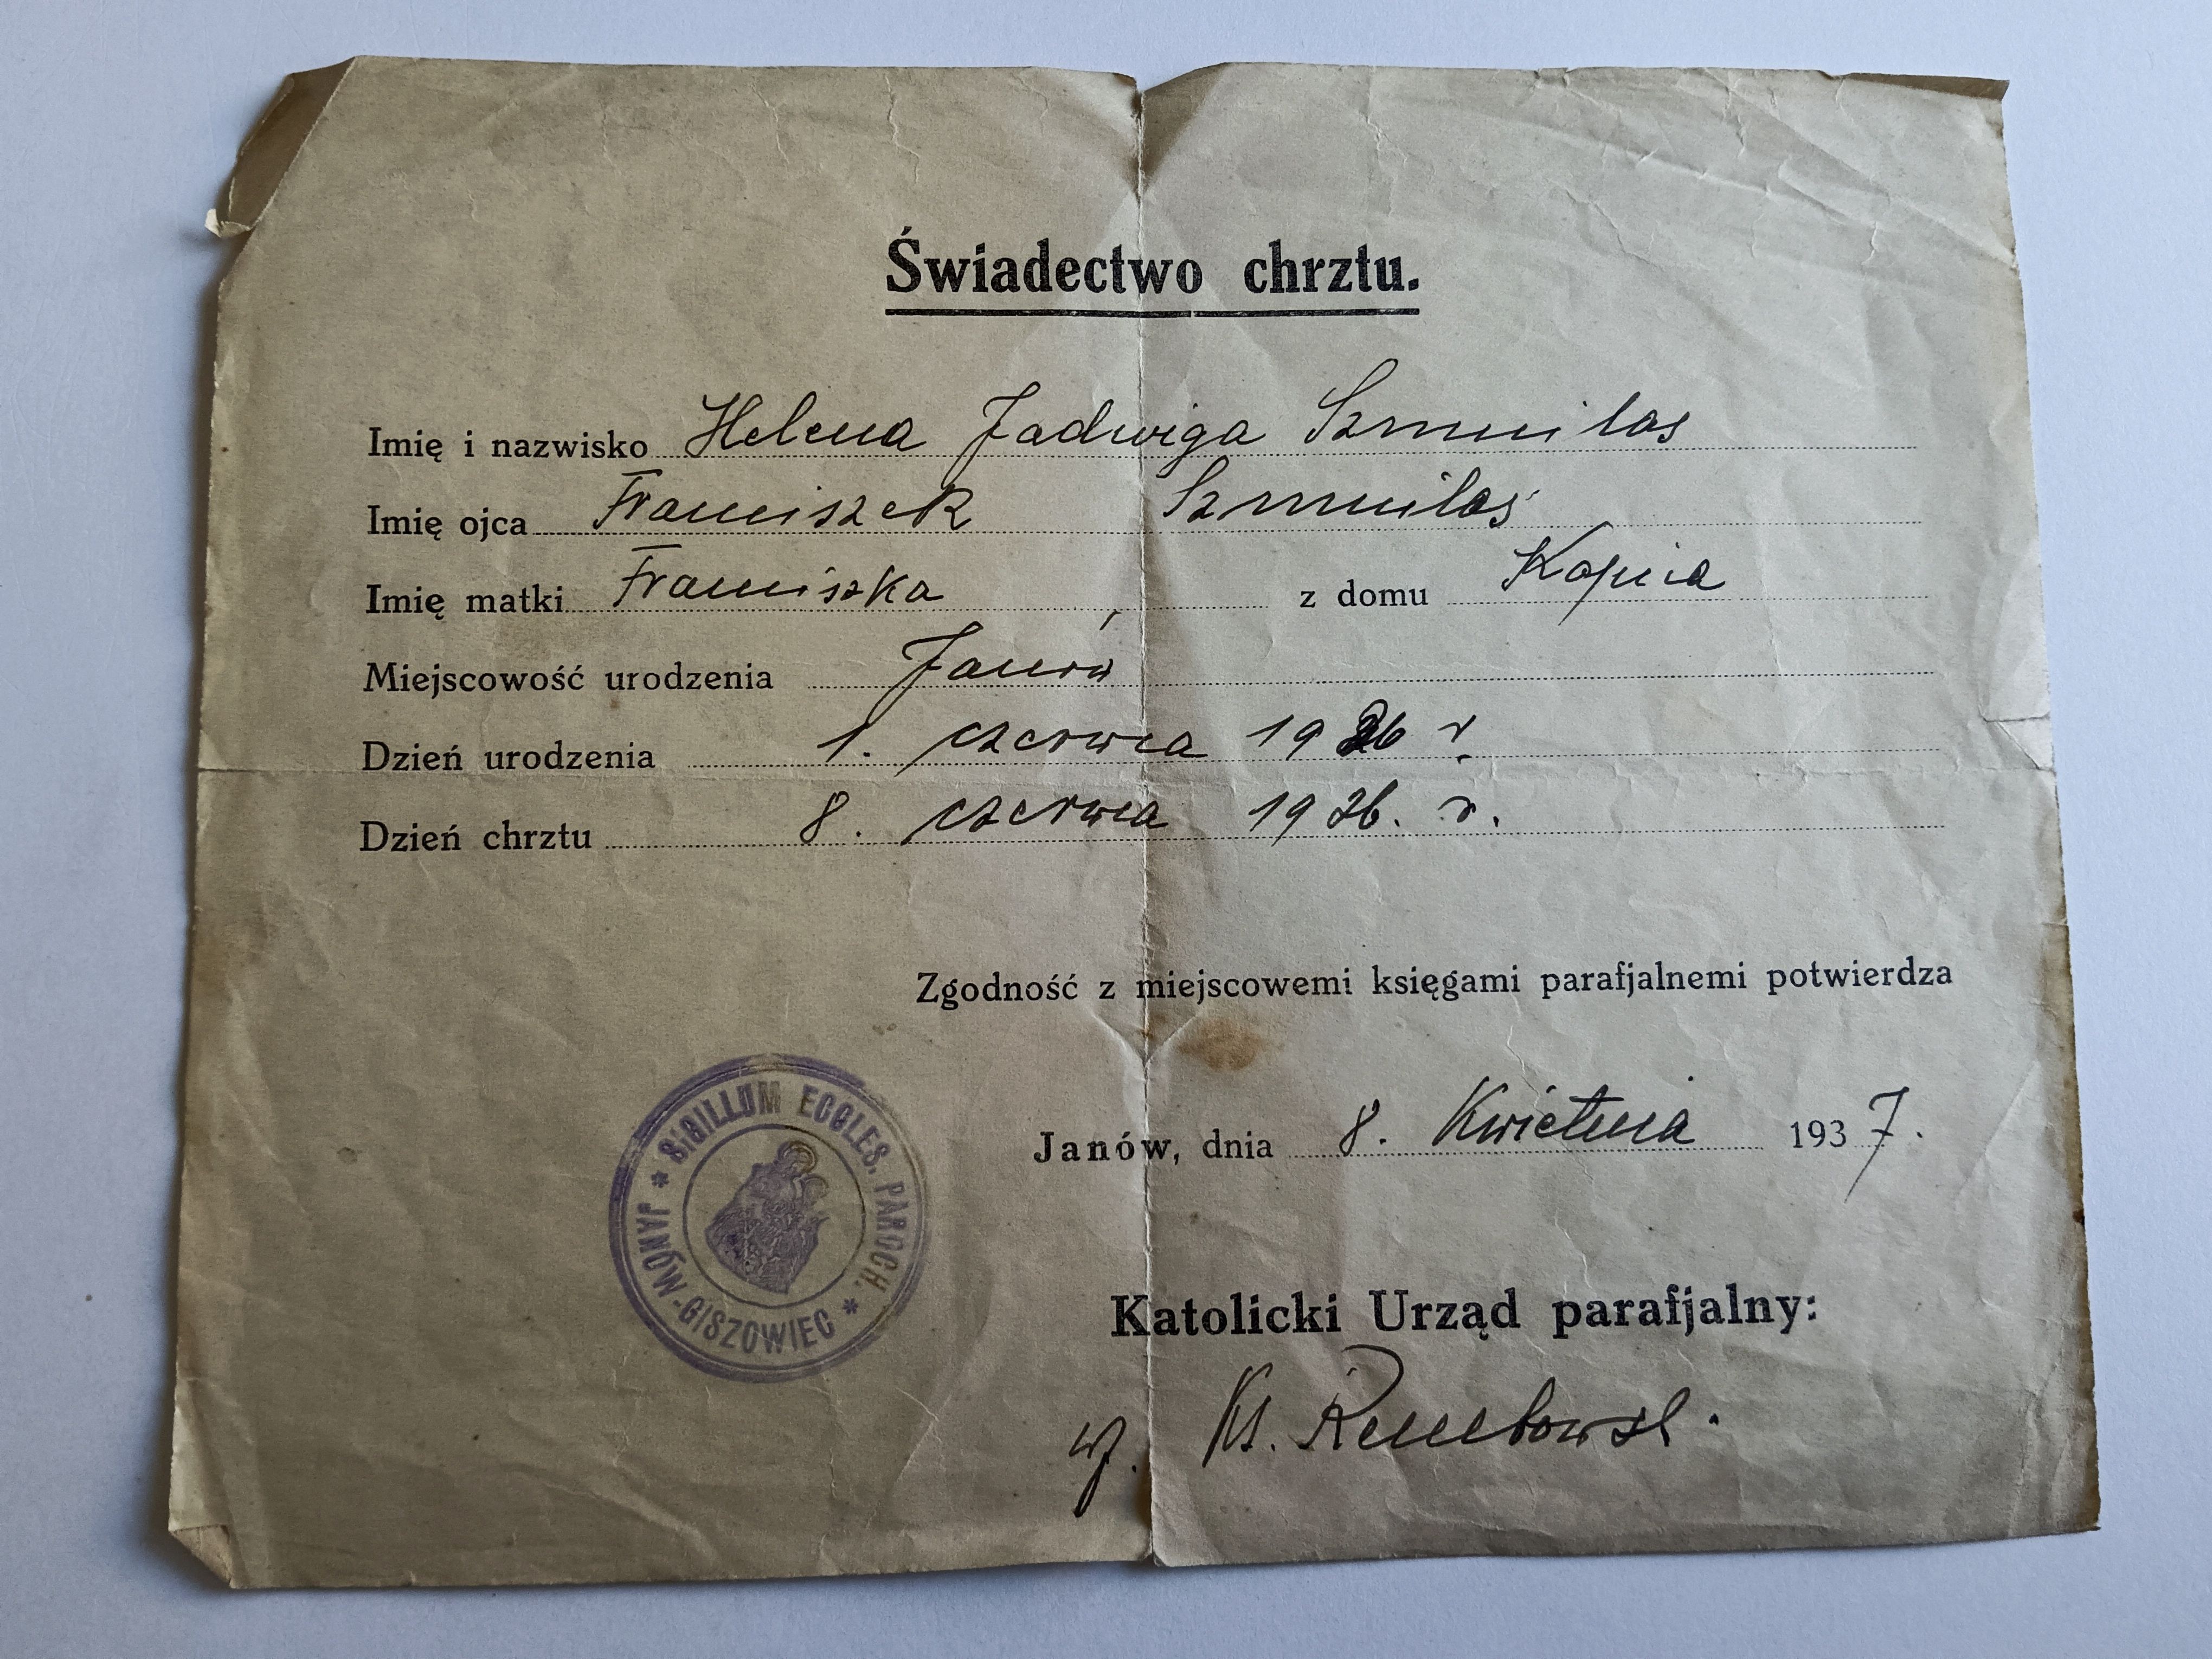 Świadectwo chrztu.
Imię i nazwisko Helena Jadwiga Szmuilas
Imię ojca Franciszek Szmuilas
Imię matki Franciszka z domu Kopiea
Miejscowość urodzenia Janów
Dzień urodzenia 1. czerwca 1926 r.
Dzień chrztu 8. czerwca 1926. r.
Zgodność z miejscowemi księgami parafjalnemi potwierdza
Janów, dnia 8. Kwietnia 1937.
SIGILLUM ECCLES. PAROCH.
JANÓW-GISZOWIEC
Katolicki Urząd parafjalny:
Ks.